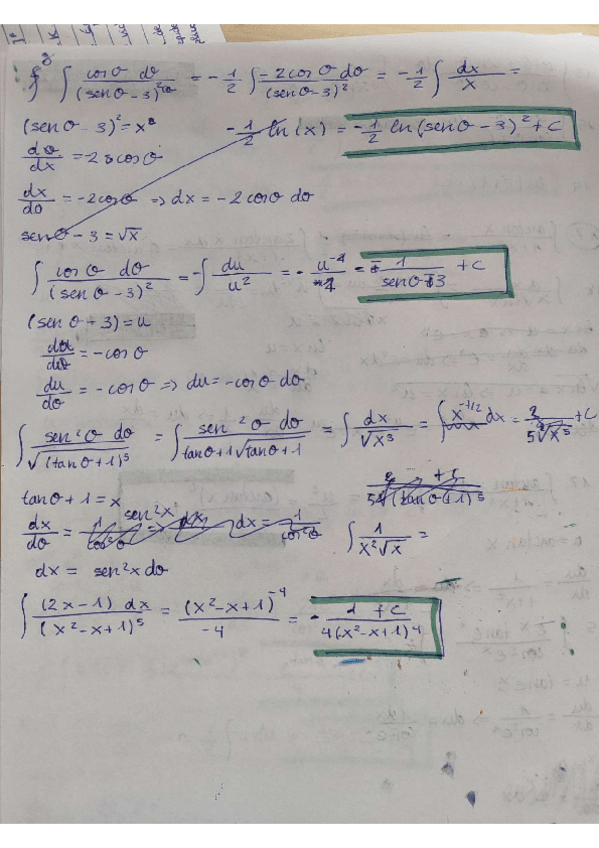 ∫ cosθ dθ / (senθ-3)² = -1/2 ∫ -2cosθ dθ / (senθ-3)² = -1/2 ∫ dx/x =
(senθ-3)² = x    -1/2 ln(x) = -1/2 ln(senθ-3)² + C
dθ/dx = -2 cosθ
dx/dθ = -2cosθ ⇒ dx = -2cosθ dθ
senθ-3 = √x
∫ cosθ dθ / (senθ-3)² = -∫ du/u² = - u⁻¹ / 1 = 1 / senθ 3 + C
(senθ+3) = u
du/dθ = -cosθ
du/dθ = -cosθ ⇒ du = -cosθ dθ
∫ sen²θ dθ / √(tanθ+1)⁵ = ∫ sen²θ dθ / tanθ+1 √tanθ+1 = ∫ dx / √x³ = ∫ x^(-1/2) dx = 2 / 5√x⁵ + C
tanθ+1 = x    + C / 5 (tanθ+1)⁵
dx/dθ = sen²x    dx = 1/cos²θ    ∫ 1 / x²√x =
dx = sen²x dθ
∫ (2x-1) dx / (x²-x+1)⁵ = (x²-x+1)⁻⁴ / -4 = - 1 + C / 4(x²-x+1)⁴